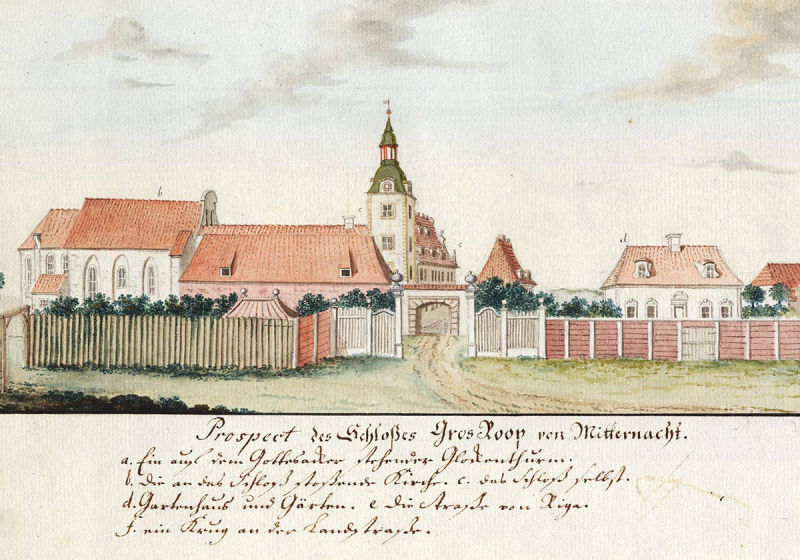 b
c
c
d
Prospect des Schloßes Gros Roop von Mitternacht.
a. Ein auf dem Gottesacker stehender Glockenthurm.
b. Die an das Schloß stoßende Kirche. c. das Schloß selbst.
d. Gartenhaus und Gärten. e die Straße von Riga.
f. ein Krug an der Landstraße.